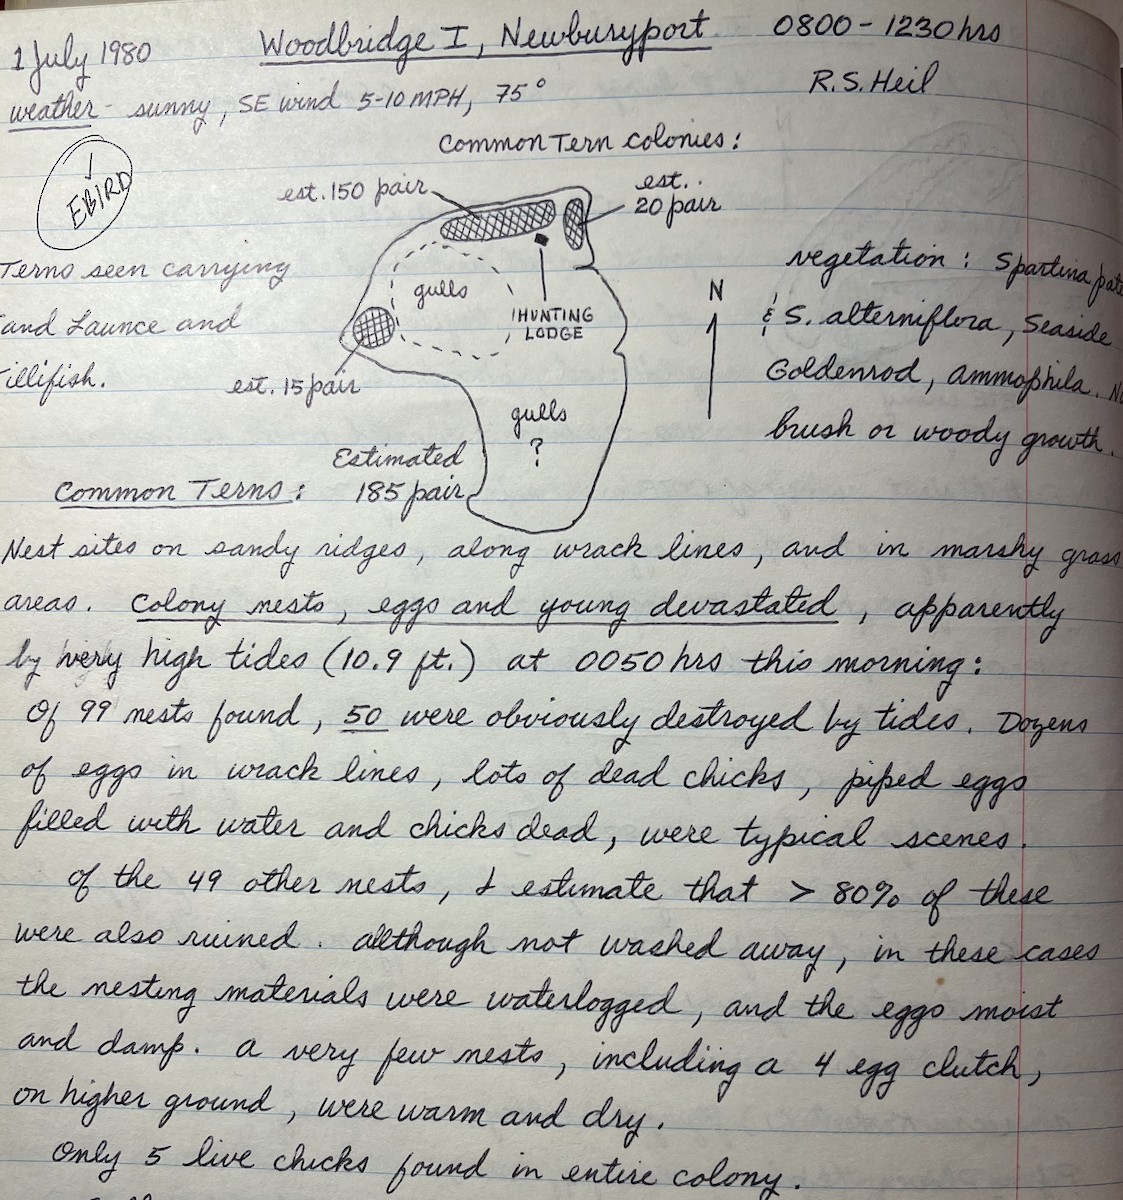 1 July 1980 Woodbridge I, Newburyport 0800-1230 hrs
weather - sunny, SE wind 5-10 MPH, 75° R.S. Heil
✓ EBIRD
Common Tern colonies:
est. 150 pair
est. 20 pair
gulls
HUNTING LODGE
N
est. 15 pair
gulls
?
Terns seen carrying
and Launce and
illifish.
vegetation: Spartina pat
& S. alterniflora, Seaside
Goldenrod, Ammophila. No
brush or woody growth.
Estimated
Common Terns: 185 pair
Nest sites on sandy ridges, along wrack lines, and in marshy grass
areas. Colony nests, eggs and young devastated, apparently
by very high tides (10.9 ft.) at 0050 hrs this morning:
Of 99 nests found, 50 were obviously destroyed by tides. Dozens
of eggs in wrack lines, lots of dead chicks, piped eggs
filled with water and chicks dead, were typical scenes.
Of the 49 other nests, I estimate that > 80% of these
were also ruined. Although not washed away, in these cases
the nesting materials were waterlogged, and the eggs moist
and damp. A very few nests, including a 4 egg clutch,
on higher ground, were warm and dry.
Only 5 live chicks found in entire colony.